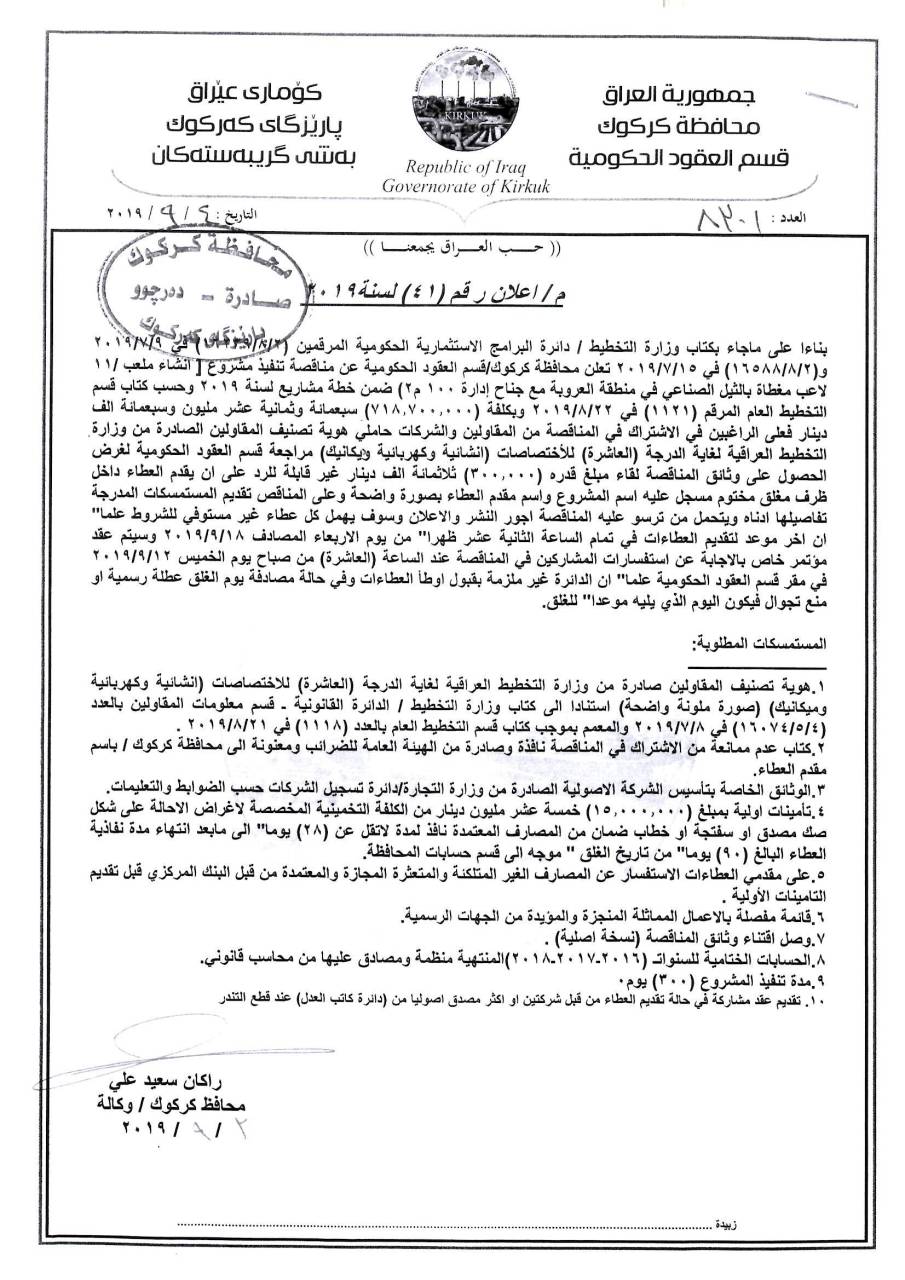 جمهورية العراق
محافظة كركوك
قسم العقود الحكومية
KIRKUK
Republic of Iraq
Governorate of Kirkuk
كۆماری عێراق
پارێزگای كەركوك
بەشی گرێبەستەكان
العدد : ٨٣٠١
التاريخ : ٤ / ٩ / ٢٠١٩
(( حب العراق يجمعنا ))
محافظة كركوك
صادرة - دەرچوو
پارێزگای كەركوك
م/ اعلان رقم (٤١) لسنة ٢٠١٩
بناءا على ماجاء بكتاب وزارة التخطيط / دائرة البرامج الاستثمارية الحكومية المرقمين في ٢٠١٩/٧/٩
و(١٦٥٨٨/٨/٢) في ٢٠١٩/٧/١٥ تعلن محافظة كركوك/قسم العقود الحكومية عن مناقصة تنفيذ مشروع [ انشاء ملعب /١١
لاعب مغطاة بالثيل الصناعي في منطقة العروبة مع جناح إدارة ١٠٠ م٢) ضمن خطة مشاريع لسنة ٢٠١٩ وحسب كتاب قسم
التخطيط العام المرقم (١١٢١) في ٢٠١٩/٨/٢٢ وبكلفة (٧١٨,٧٠٠,٠٠٠) سبعمائة وثمانية عشر مليون وسبعمائة الف
دينار فعلى الراغبين في الاشتراك في المناقصة من المقاولين والشركات حاملي هوية تصنيف المقاولين الصادرة من وزارة
التخطيط العراقية لغاية الدرجة (العاشرة) للأختصاصات (انشائية وكهربائية وميكانيك) مراجعة قسم العقود الحكومية لغرض
الحصول على وثائق المناقصة لقاء مبلغ قدره (٣٠٠,٠٠٠) ثلاثمائة الف دينار غير قابلة للرد على ان يقدم العطاء داخل
ظرف مغلق مختوم مسجل عليه اسم المشروع واسم مقدم العطاء بصورة واضحة وعلى المناقص تقديم المستمسكات المدرجة
تفاصيلها ادناه ويتحمل من ترسو عليه المناقصة اجور النشر والاعلان وسوف يهمل كل عطاء غير مستوفي للشروط علما"
ان اخر موعد لتقديم العطاءات في تمام الساعة الثانية عشر ظهرا" من يوم الاربعاء المصادف ٢٠١٩/٩/١٨ وسيتم عقد
مؤتمر خاص بالاجابة عن استفسارات المشاركين في المناقصة عند الساعة (العاشرة) من صباح يوم الخميس ٢٠١٩/٩/١٢
في مقر قسم العقود الحكومية علما" ان الدائرة غير ملزمة بقبول اوطأ العطاءات وفي حالة مصادفة يوم الغلق عطلة رسمية او
منع تجوال فيكون اليوم الذي يليه موعدا" للغلق.
المستمسكات المطلوبة:
١.هوية تصنيف المقاولين صادرة من وزارة التخطيط العراقية لغاية الدرجة (العاشرة) للاختصاصات (انشائية وكهربائية
وميكانيك) (صورة ملونة واضحة) استنادا الى كتاب وزارة التخطيط / الدائرة القانونية - قسم معلومات المقاولين بالعدد
(١٦٠٧٤/٥/٤) في ٢٠١٩/٧/٨ والمعمم بموجب كتاب قسم التخطيط العام بالعدد (١١١٨) في ٢٠١٩/٨/٢١ .
٢.كتاب عدم ممانعة من الاشتراك في المناقصة نافذة وصادرة من الهيئة العامة للضرائب ومعنونة الى محافظة كركوك / باسم
مقدم العطاء.
٣.الوثائق الخاصة بتأسيس الشركة الاصولية الصادرة من وزارة التجارة/دائرة تسجيل الشركات حسب الضوابط والتعليمات.
٤.تأمينات اولية بمبلغ (١٥,٠٠٠,٠٠٠) خمسة عشر مليون دينار من الكلفة التخمينية المخصصة لاغراض الاحالة على شكل
صك مصدق او سفتجة او خطاب ضمان من المصارف المعتمدة نافذ لمدة لاتقل عن (٢٨) يوما" الى مابعد انتهاء مدة نفاذية
العطاء البالغ (٩٠) يوما" من تاريخ الغلق " موجه الى قسم حسابات المحافظة.
٥.على مقدمي العطاءات الاستفسار عن المصارف الغير المتلكئة والمتعثرة المجازة والمعتمدة من قبل البنك المركزي قبل تقديم
التامينات الأولية .
٦.قائمة مفصلة بالاعمال المماثلة المنجزة والمؤيدة من الجهات الرسمية.
٧.وصل اقتناء وثائق المناقصة (نسخة اصلية) .
٨.الحسابات الختامية للسنوات (٢٠١٦-٢٠١٧-٢٠١٨)المنتهية منظمة ومصادق عليها من محاسب قانوني.
٩.مدة تنفيذ المشروع (٣٠٠) يوم٠
١٠. تقديم عقد مشاركة في حالة تقديم العطاء من قبل شركتين او اكثر مصدق اصوليا من (دائرة كاتب العدل) عند قطع التندر
راكان سعيد علي
محافظ كركوك / وكالة
٢ / ٩ / ٢٠١٩
زبيدة